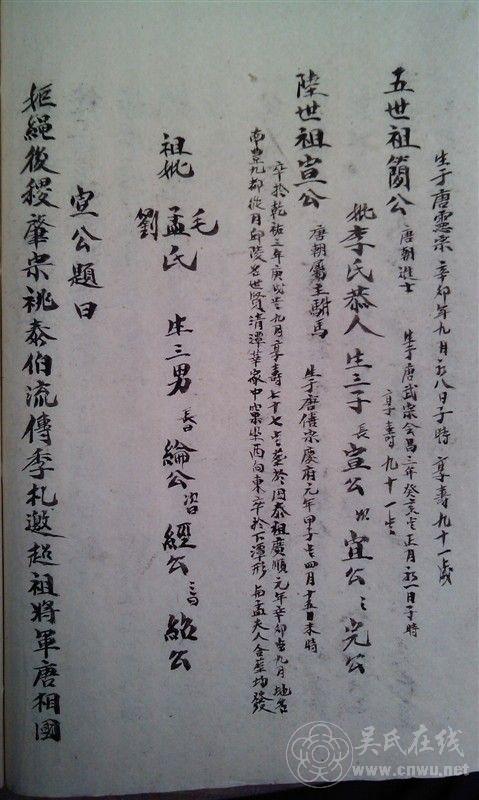 生于唐憲宗辛卯年九月初八日子時 享壽九十一歲
五世祖簡公 唐朝進士 生于唐武宗会昌三年癸亥 正月初一日子時
享壽九十一
妣李氏恭人 生三子 長宣公 次宜公 三完公
陸世祖宣公 唐朝 主駙馬 生于唐僖宗 元年甲 四月十五日未時
卒於乾祐三年庚戌 九月享壽七十七 葬於因泰祖廣順元年辛卯 九月地名
南豊九都 月 陵名世賢清潭華家中 坐西向東 於下潭形 孟夫人合葬均發
祖妣 毛 孟 劉 氏 生三男 長曰綸公 次曰經公 三曰紹公
宣公題曰
姬繩後稷肇宗祧泰伯流傳季札邀超祖將軍唐相國
吴氏在线
www.cnwu.net